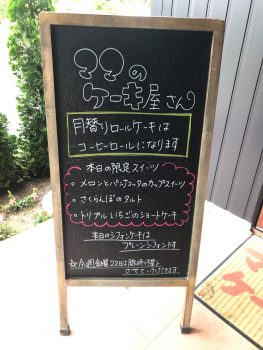 ママの
ケーキ屋さん
月替りロールケーキは
コーヒーロールになります
本日の限定スイーツ
・メロンとパンナコッタのカップスイーツ
・さくらんぼのタルト
・トリプルいちごのショートケーキ
本日のシフォンケーキは
プレーンシフォンです
☆今週金曜22日は臨時休業と
させていただきます